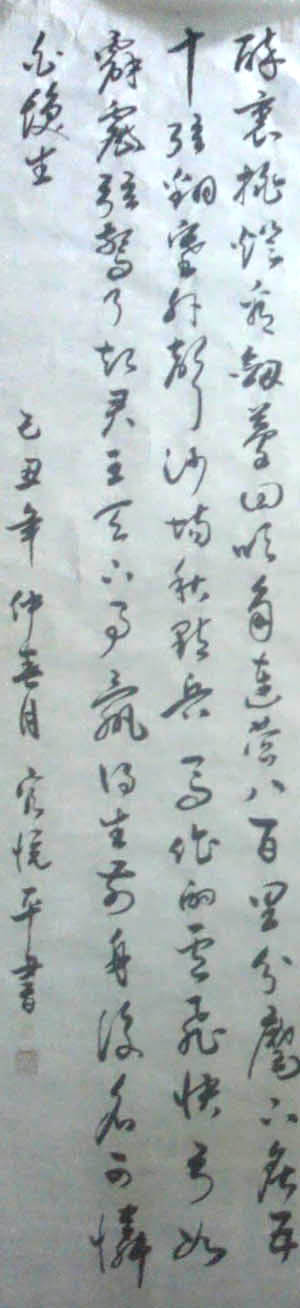 醉裏挑燈看劍夢回吹角連營八百里分麾下炙五
十弦翻塞外聲沙場秋點兵馬作的盧飛快弓如
霹靂弦驚了却君王天下事贏得生前身後名可憐
白髮生
己丑年仲春月官悦平書